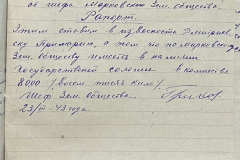 от шефа Марковского Зем. общества
Рапорт.
Этим ставим в известность
ску Примарию, о том что по Марковско
Зем. обществу имеется в наличии
Государственной соломы в количестве
8000 / Восем тысяч кило /
Шеф Зем. общества
23/III-43 года